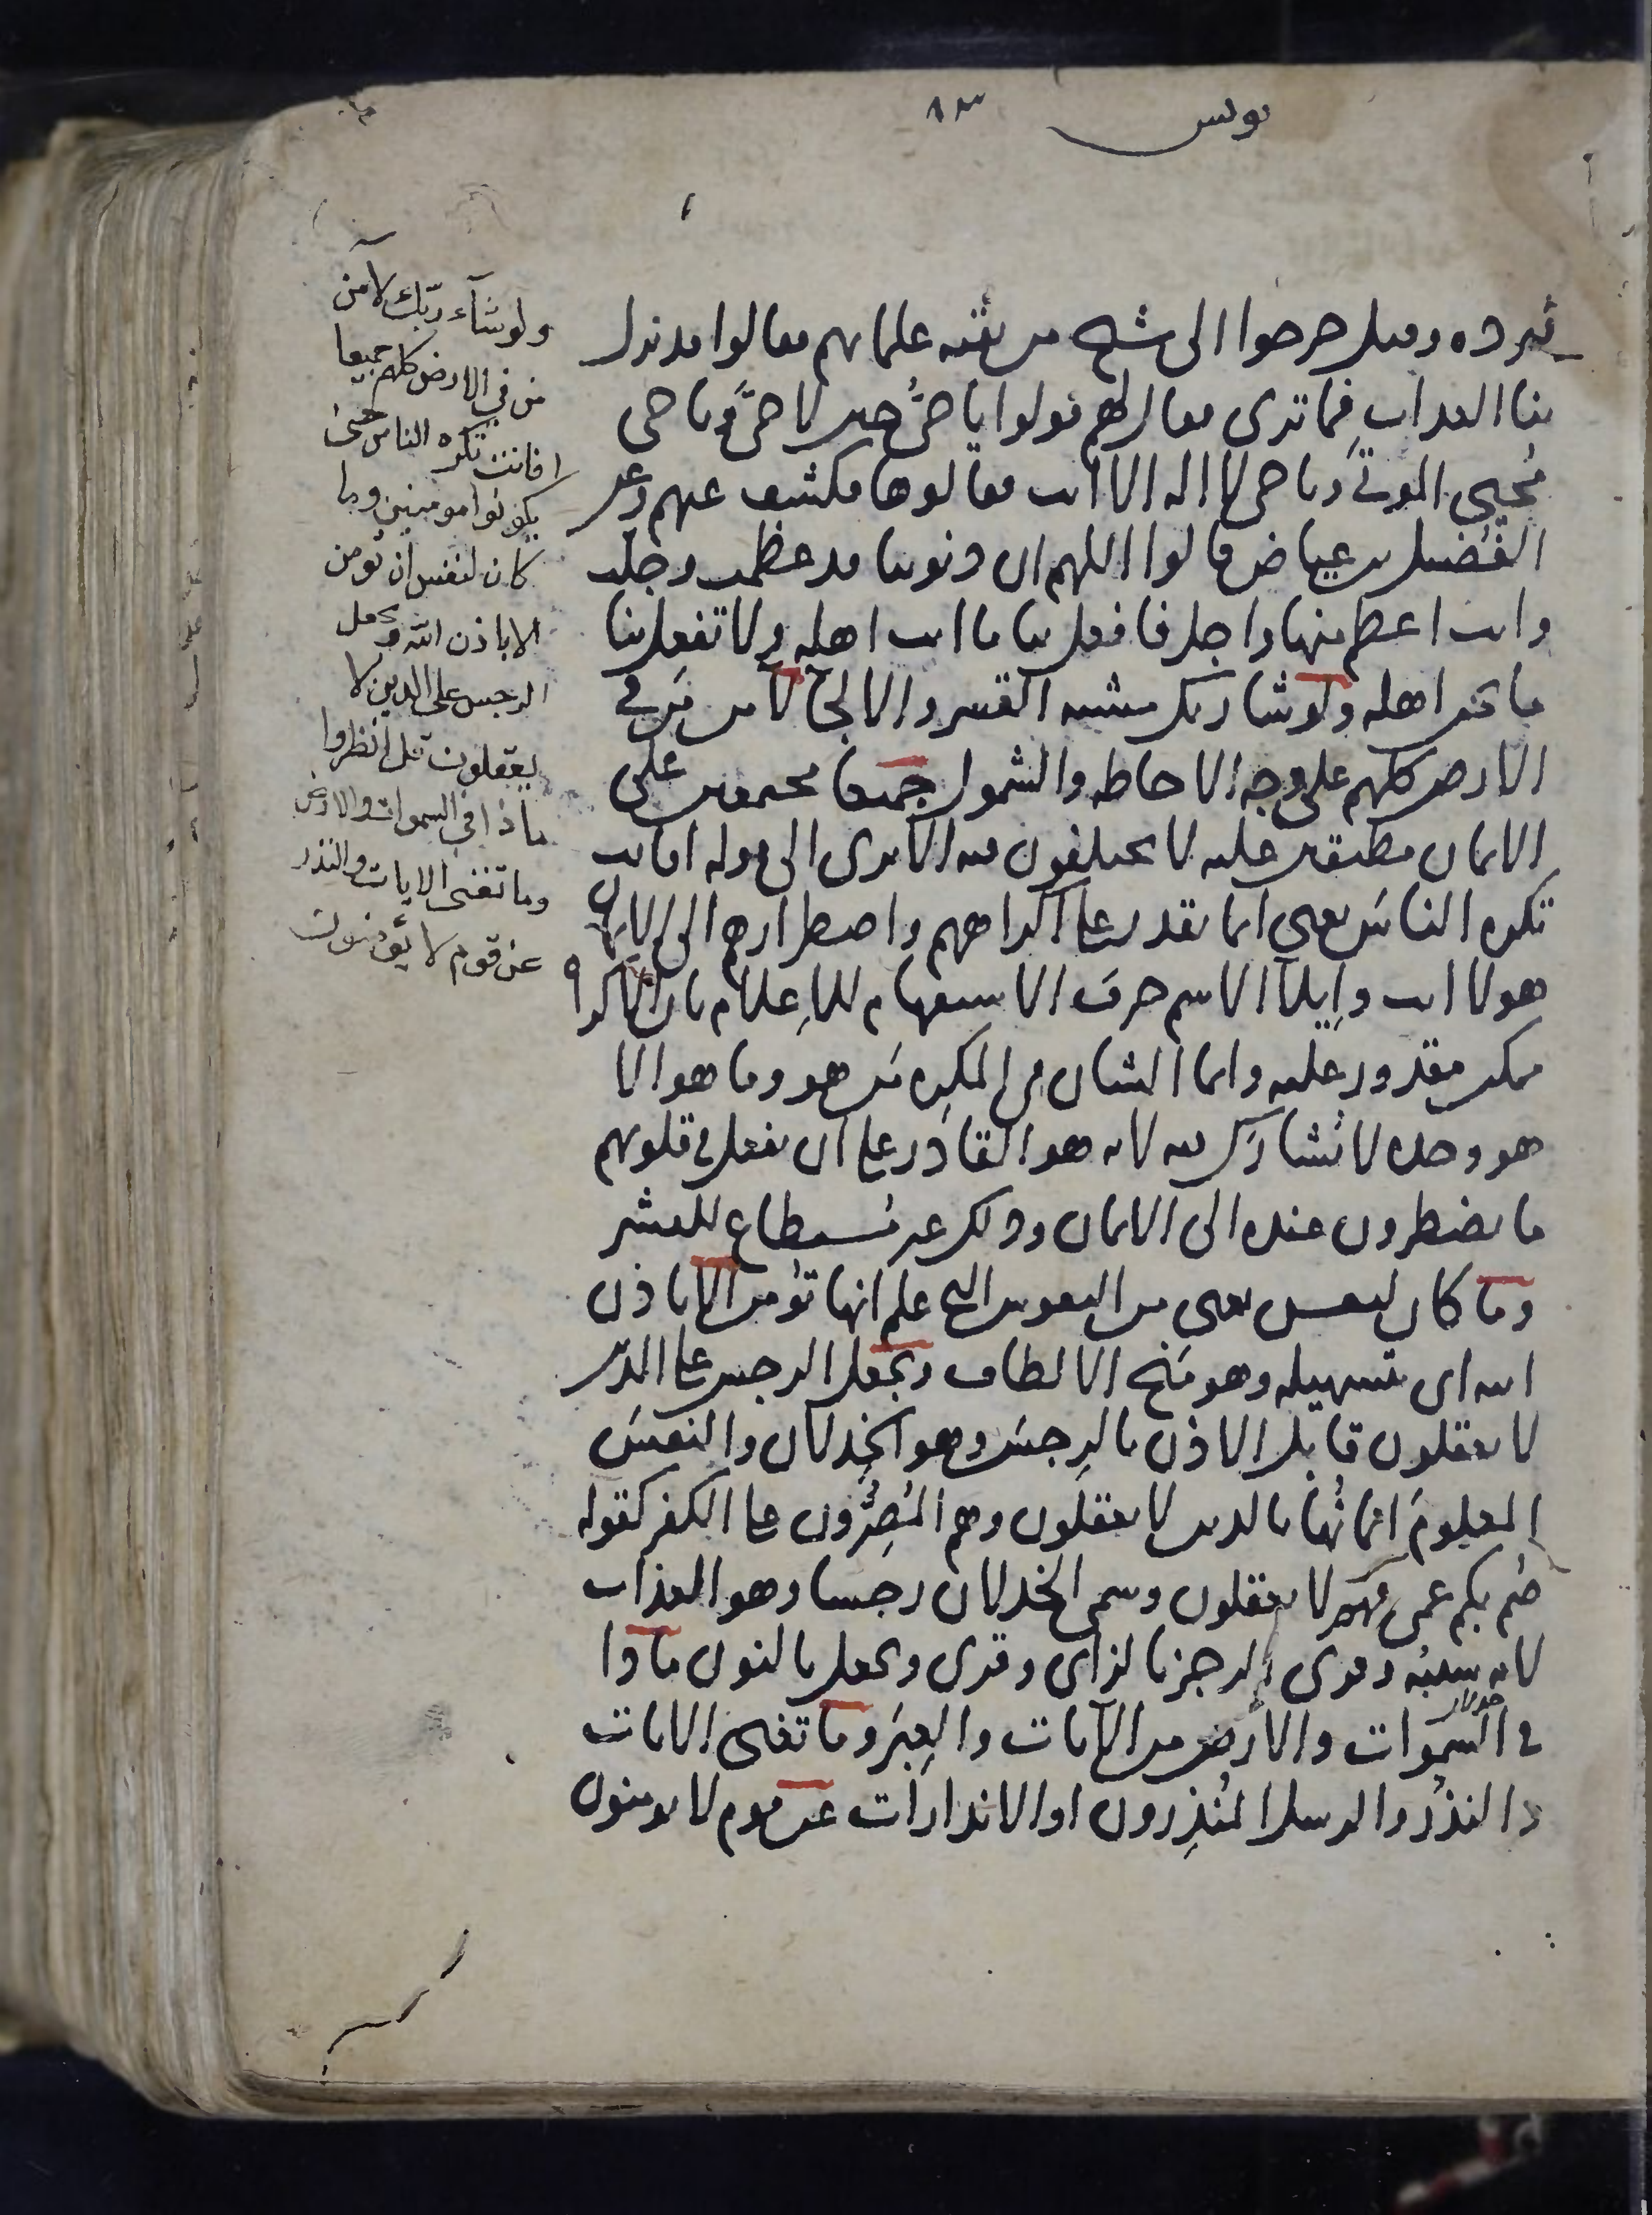 يونس ٨٣
فيرده وقيل خرجوا الى شيخ من بقية علمائهم فقالوا قد نزل
بنا العذاب فما ترى فقال لهم قولوا يا حيُّ حين لا حيَّ ويا حي
مُحيي الموتى ويا حي لا اله الا انت فقالوها فكشف عنهم وعن
الفُضيل بن عياض قالوا اللهم ان ذنوبنا قد عظمت وجلت
وانت اعظم منها واجل فافعل بنا ما انت اهله ولا تفعل بنا
ما نحن اهله ولو شا ربك مشيه القسر والالجا لامن من في
الارض كلهم على وجه الاحاطه والشمول جميعا مجتمعين على
الايمان مطبقين عليه لا يختلفون فيه الا ترى الى قوله افانت
تكره الناسَ يعني انما يقدر على اكراههم واضطرارهم الى الايمان
هو لا انت وإيلا الاسم حرف الاستفهام للاِعلام بان الاكراه
ممكن مقدور عليه وانما الشان في المكرِه مَن هو وما هو الا
هو وحده لا يُشارَك فيه لانه هو القادر على ان يفعل في قلوبهم
ما يضطرون عنده الى الايمان وذلك غير مُستطاع للبشر
وما كان لنفس يعني من النفوس التي علم انها تُومن الا باذن
الله اى بتسهيله وهو مَنح الالطاف ويجعل الرجس على الذين
لا يعقلون قابل الاذن بالرِجسَ وهو الخِذلان والنفسَ
المعلومَ ايمانُها بالذين لا يعقلون وهم المُصِرُّون على الكفر كقوله
صُم بكم عمى فهم لا يعقلون وسمى الخذلان رجسا وهو العذاب
لانه سببُه وقرى الرجز بالزاى وقرى ونجعل بالنون ماذا
في السموات والارض من الآيات والعِبَر وما تغنى الايات
والنذُر والرسل المُنذِرون او الانذارات عن قوم لا يومنون
ولو شآء ربّك لآمن
من في الارض كلهم جميعا
افانت تكره الناس حتى
يكونوا مومنين وما
كان لنفس ان تومن
الا باذن الله ويجعل
الرجس على الذين لا
يعقلون قل انظروا
ماذا في السموات والارض
وما تغنى الايات والنذر
عن قوم لا يؤمنون